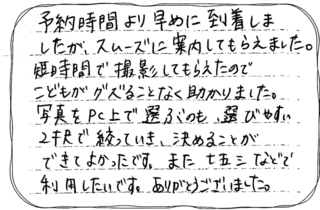 予約時間より早めに到着しま
したが、スムーズに案内してもらえました。
短時間で撮影してもらえたので
こどもがグズることなく助かりました。
写真をPC上で選ぶのも、選びやすい
2択で絞っていき、決めることが
できてよかったです。また七五三などで
利用したいです。ありがとうございました。